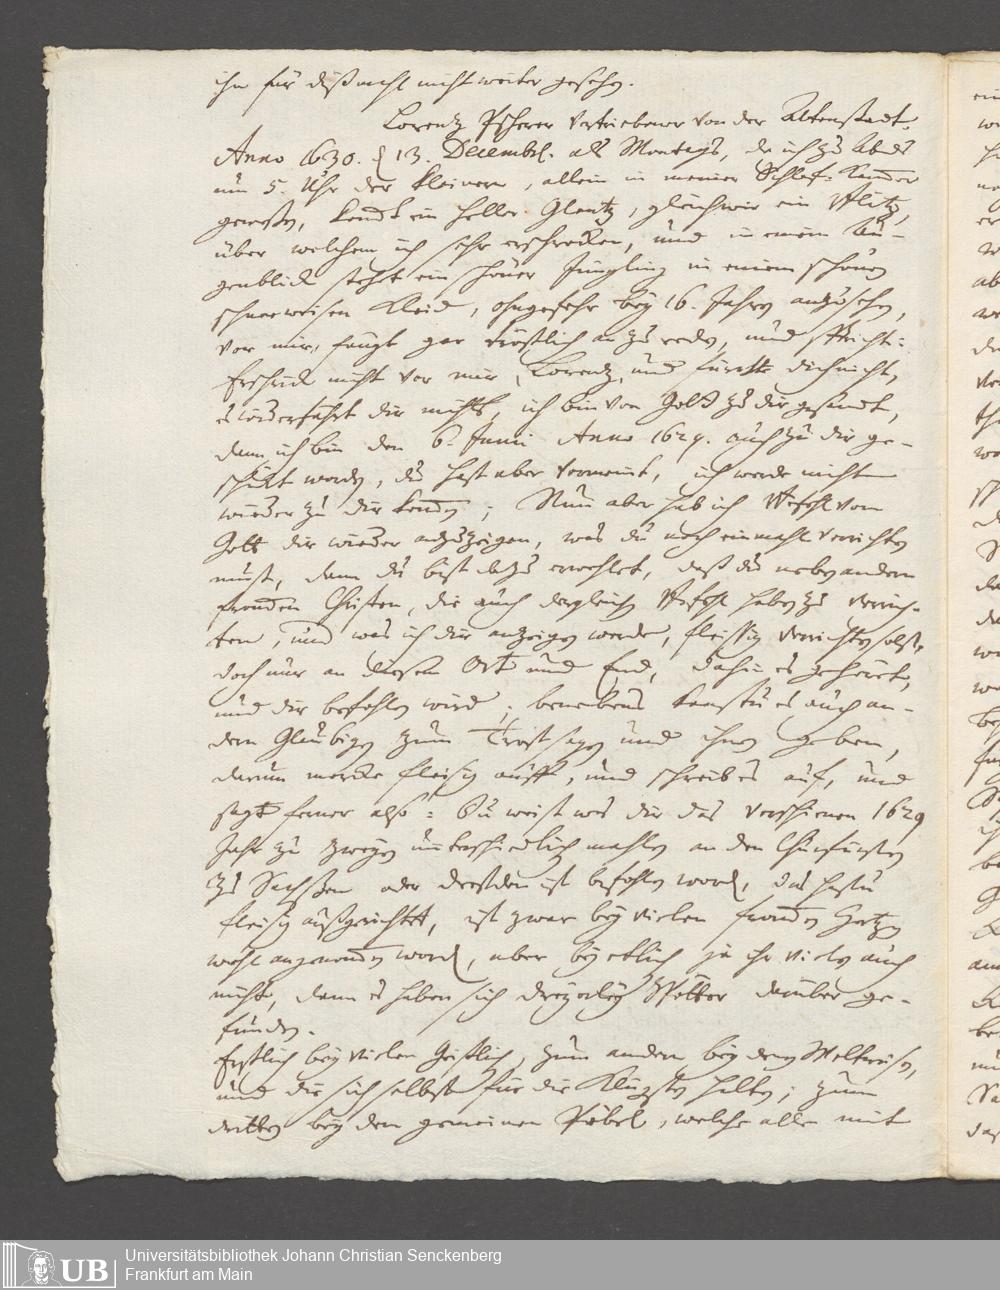 ihn für dißmahl nicht weiter gesehen.
Lorentz Pscherer Vertriebener von der Altenstadt.
Anno 1630. d 13. Decembr. als Montags, da ich zu Abends
um 5. Uhr der kleinern, allein in meiner Schlaf-Kammer
gewesen, komt ein heller Glantz, gleich wie ein Blitz,
über welchem ich sehr erschrocken, und in einem Au-
genblick stehet ein schöner Jüngling in einem schönen
schneeweisen Kleid, ohngefehr bey 16. Jahren anzusehen,
vor mir, fangt gar tröstlich an zu reden, und spricht:
Erschrick nicht vor mir, Lorentz, und fürchte dich nicht,
es wiederfährt dir nichts, ich bin von Gott zu dir gesandt,
dann ich bin den 6. Junii Anno 1629. auch zu dir ge-
schickt worden, du hast aber vermeint, ich werde nicht
wieder zu dir kommen; Nun aber hab ich Befehl von
Gott dir wieder anzuzeigen, was du noch einmahl verrichten
must, dann du bist dazu erwehlet, daß du neben andern
frommen Christen, die auch dergleichen Befehl haben zu verrich-
ten, und was ich dir anzeigen werde, fleissig verrichten solst,
doch nur an diesem Ort und End, dahin es gehöret,
und dir befohlen wird; benebens kanstu es auch an-
dern Gläubigen zum Trost sagen und ihnen geben,
darum mercke fleisig auff, und schreib es auf, und
sagt ferner also: Du weist was dir das verschienen 1629
Jahr zu zweyen unterschiedlich mahlen an den Churfürsten
zu Sachßen oder Dresden ist befohlen word, das hastu
fleisig außgerichtet, ist zwar bey vielen frommen Hertzen
wohl angenommen word, aber bey etlich ja ihr vielen auch
nicht, dann es haben sich dreyerley Spötter darüber ge-
funden.
Erstlich bey vielen Geistlich, zum andern bey den Weltweisen,
und die sich selbst für die Klügsten halten; zum
dritten bey dem gemeinen Pöbel, welche alle mit
Universitätsbibliothek Johann Christian Senckenberg
Frankfurt am Main
UB